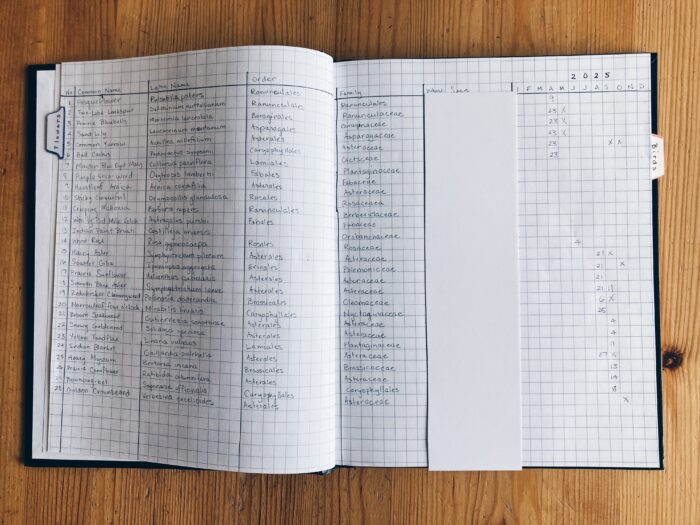 2025
No Common Name Latin Name Order Family J F M A M J J A S O N D
1 Pasqueflower Pulsatilla patens Ranunculales Ranunculales 9
2 Two-Lobe Larkspur Delphinium nuttallianum Ranunculales Ranunculaceae 23 x
3 Prairie Bluebells Mertensia lanceolata Boraginales Boraginaceae 23 x
4 Sand Lily Leucocrinum montanum Asparagales Asparagaceae 23 x
5 Common Yarrow Achillea millefolium Asterales Asteraceae 23 x x
6 Ball Cactus Caryophyllales Cactaceae 23
7 Maiden Blue Eyed Mary Collinsia parviflora Lamiales Plantaginaceae
8 Purple Loco-weed Oxytropis lambertii Fabales Fabaceae
9 Heartleaf Arnica Arnica cordifolia Asterales Asteraceae
10 Sticky Cinquefoil Drymocallis glandulosa Rosales Rosaceaea
11 Creeping Mahonia Berberis repens Ranunculales Berberidaceae
12 Milk Vetch Astragalus purshii Fabales Fabaceae
13 Indian Paint Brush Castilleja Orobanchaceae
14 Wood Rose Rosa gymnocarpa Rosales Rosaceae 4
15 Hairy Aster Symphyotrichum pilosum Asterales Asteraceae 21 x
16 Scarlet Gilia Ipomopsis aggregata Polemoniceae 21 x
17 Prairie Sunflower Helianthus petiolaris Asterales Asteraceae 21
18 Smooth Blue Aster Symphyotrichum laeve Asterales Asteraceae 21 11
19 Redwhisker Clammyweed Polanisia dodecandra Brassicales Cleomaceae 6 x
20 Narrowleaf four o'clock Mirabilis linearis Caryophyllales Nyctaginaceae 25
21 Broom Snakeweed Gutierrezia sarothrae Asterales Asteraceae 4
22 Goldenrod Solidago speciosa Asterales Asteraceae 4
23 Yellow Toadflax Linaria vulgaris Lamiales Plantaginaceae 11
24 Indian Blanket Gaillardia pulchella Asterales Asteraceae 15
25 Hoary Alyssum Berteroa incana Brassicales Brassicaceae 13
26 Prairie Coneflower Ratibida columnifera Asterales Asteraceae 14
27 Bouncing-bet Saponaria officinalis Caryophyllales Caryophyllales 8
28 Golden Crownbeard Verbesina encelioides Asterales Asteraceae x
Flowers
Birds